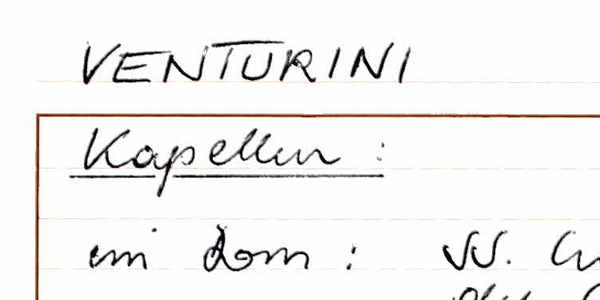 VENTURINI
Kapellen :
im Dom : SS.